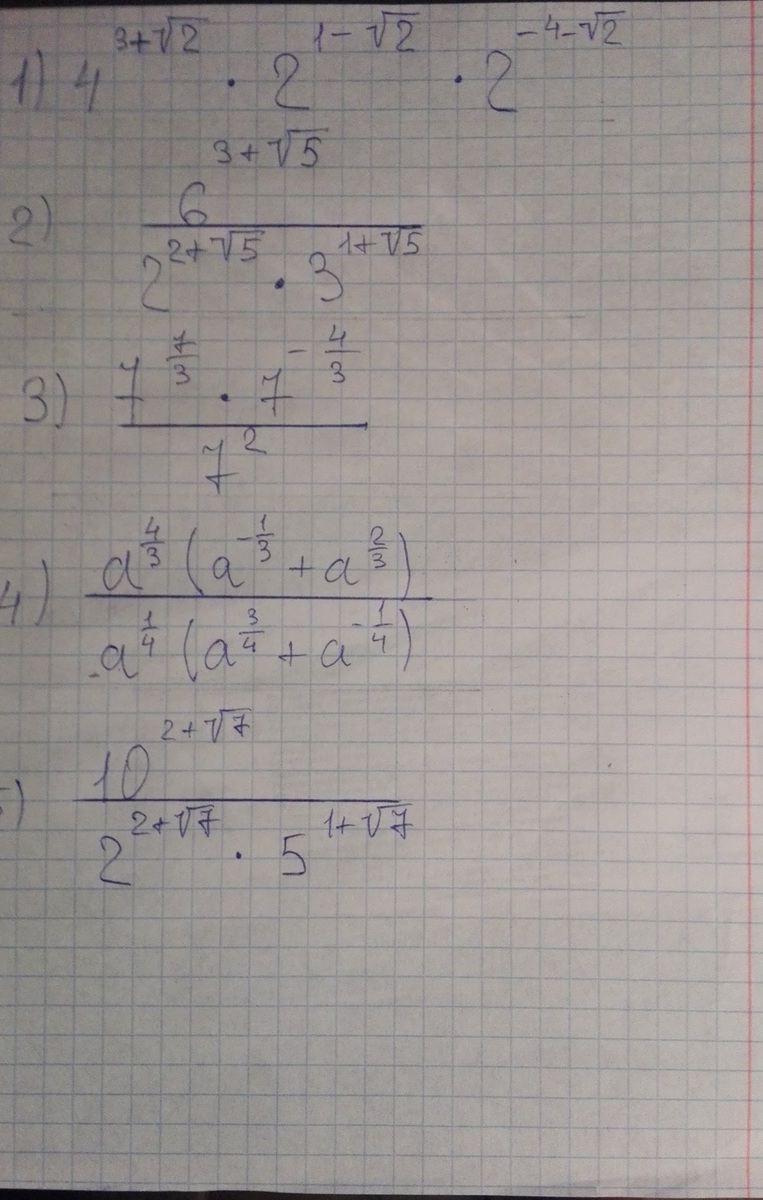 1) 4^(3+√2) · 2^(1-√2) · 2^(-4-√2)
2) 6^(3+√5) / (2^(2+√5) · 3^(1+√5))
3) (7^(7/3) · 7^(-4/3)) / 7^2
4) (a^(4/3) (a^(-1/3) + a^(2/3))) / (a^(1/4) (a^(3/4) + a^(-1/4)))
) 10^(2+√7) / (2^(2+√7) · 5^(1+√7))